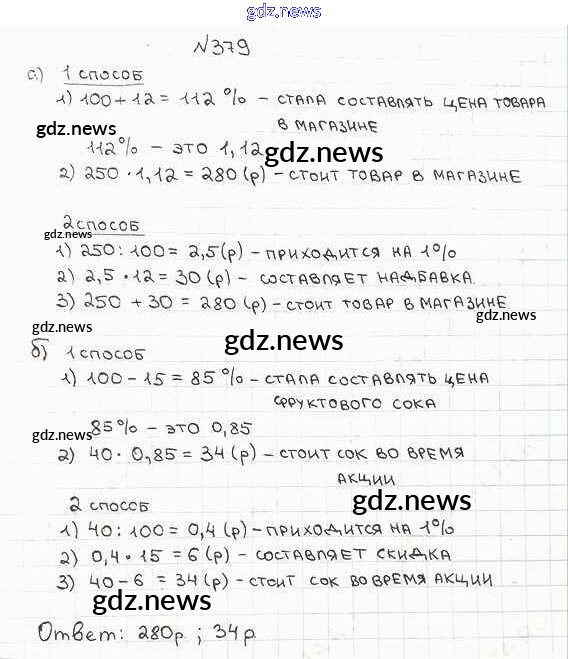 gdz.news
N379
а) 1 способ
1) 100 + 12 = 112 % - стала составлять цена товара
в магазине
gdz.news
112% - это 1,12
gdz.news
2) 250 · 1,12 = 280 (р) - стоит товар в магазине
2 способ
gdz.news
1) 250 : 100 = 2,5 (р) - приходится на 1%
2) 2,5 · 12 = 30 (р) - составляет надбавка
3) 250 + 30 = 280 (р) - стоит товар в магазине
gdz.news
gdz.news
gdz.news
б) 1 способ
1) 100 - 15 = 85 % - стала составлять цена
фруктового сока
85% - это 0,85
gdz.news
2) 40 · 0,85 = 34 (р) - стоит сок во время
акции
2 способ
gdz.news
1) 40 : 100 = 0,4 (р) - приходится на 1%
2) 0,4 · 15 = 6 (р) - составляет скидка
3) 40 - 6 = 34 (р) - стоит сок во время акции
gdz.news
Ответ: 280р ; 34р